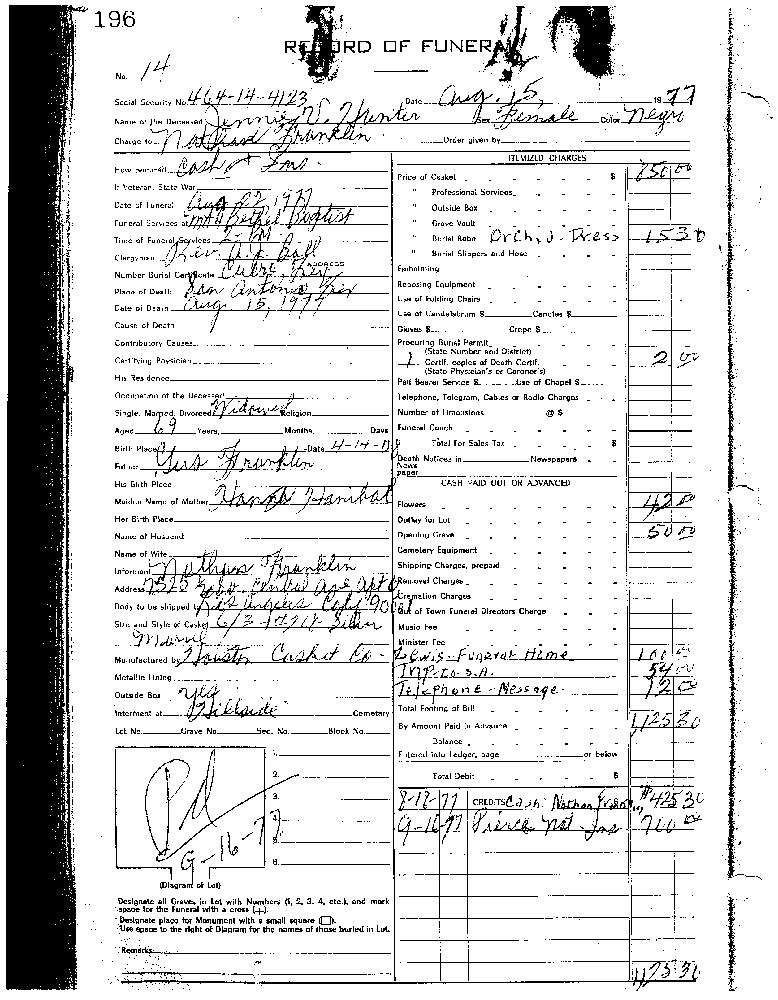 196
RECORD OF FUNERAL
No. 14
Social Security No. 464-14-4123 Date Aug. 15, 1977
Name of the Deceased Jennie V. Hunter Sex Female Color Negro
Charge to Nathan Franklin Order given by
How secured Cash or Ins.
If Veteran, State War
Date of Funeral Aug 22, 1977
Funeral Services at Mt. Bethel Baptist
Time of Funeral Services 2 PM
Clergyman Rev. Ball
ADDRESS
Number Burial Certificate Cuero, Tex
Place of Death San Antonio Tex
Date of Death Aug 15, 1977
Cause of Death
Contributory Causes
Certifying Physician
His Residence
Occupation of the Deceased
Single, Married, Divorced Widowed Religion
Aged 69 Years, Months, Days
Birth Place Date 4-14-
Father Gus Franklin
His Birth Place
Maiden Name of Mother Hanna Hanibal
Her Birth Place
Name of Husband
Name of Wife
Informant Nathan Franklin
Address 7525 Central Ave Apt
Body to be shipped to Los Angeles
Size and Style of Casket 6/3 Silver
Manufactured by Houston Casket Co.
Metallic Lining
Outside Box yes
Interment at Hillside Cemetery
Lot No. Grave No. Sec. No. Block No.
1.
2.
3.
4.
5.
6.
Pd
9-16-77
(Diagram of Lot)
Designate all Graves in Lot with Numbers (1, 2, 3, 4, etc.), and mark
space for the Funeral with a cross (+).
Designate place for Monument with a small square (□).
Use space to the right of Diagram for the names of those buried in Lot.
Remarks:
ITEMIZED CHARGES
Price of Casket $ 850 00
" Professional Services
" Outside Box
" Grave Vault
" Burial Robe Orchid Dress 15 30
" Burial Slippers and Hose
Embalming
Reposing Equipment
Use of Folding Chairs
Use of Candelabrum $ Candles $
Gloves $ Crepe $
Procuring Burial Permit
(State Number and District)
1 Certif. copies of Death Certif. 2 00
(State Physician's or Coroner's)
Pall Bearer Service $ Use of Chapel $
Telephone, Telegram, Cables or Radio Charges
Number of Limousines @ $
Funeral Coach
Total for Sales Tax $
Death Notices in Newspapers
News
paper
CASH PAID OUT OR ADVANCED
Flowers 42 00
Outlay for Lot
Opening Grave 50 00
Cemetery Equipment
Shipping Charges, prepaid
Removal Charges
Cremation Charges
Out of Town Funeral Directors Charge
Music Fee
Minister Fee
Lewis Funeral Home 100 00
Trip to S.A. 54 00
Telephone - Message 12 00
Total Footing of Bill 1,125 30
By Amount Paid in Advance
Balance
Entered into Ledger, page or below
Total Debit $
8-18-77 CREDITS Cash: Nathan Franklin $425 30
9-16-77 Pierce Nat. Ins 700 00
1,125 30